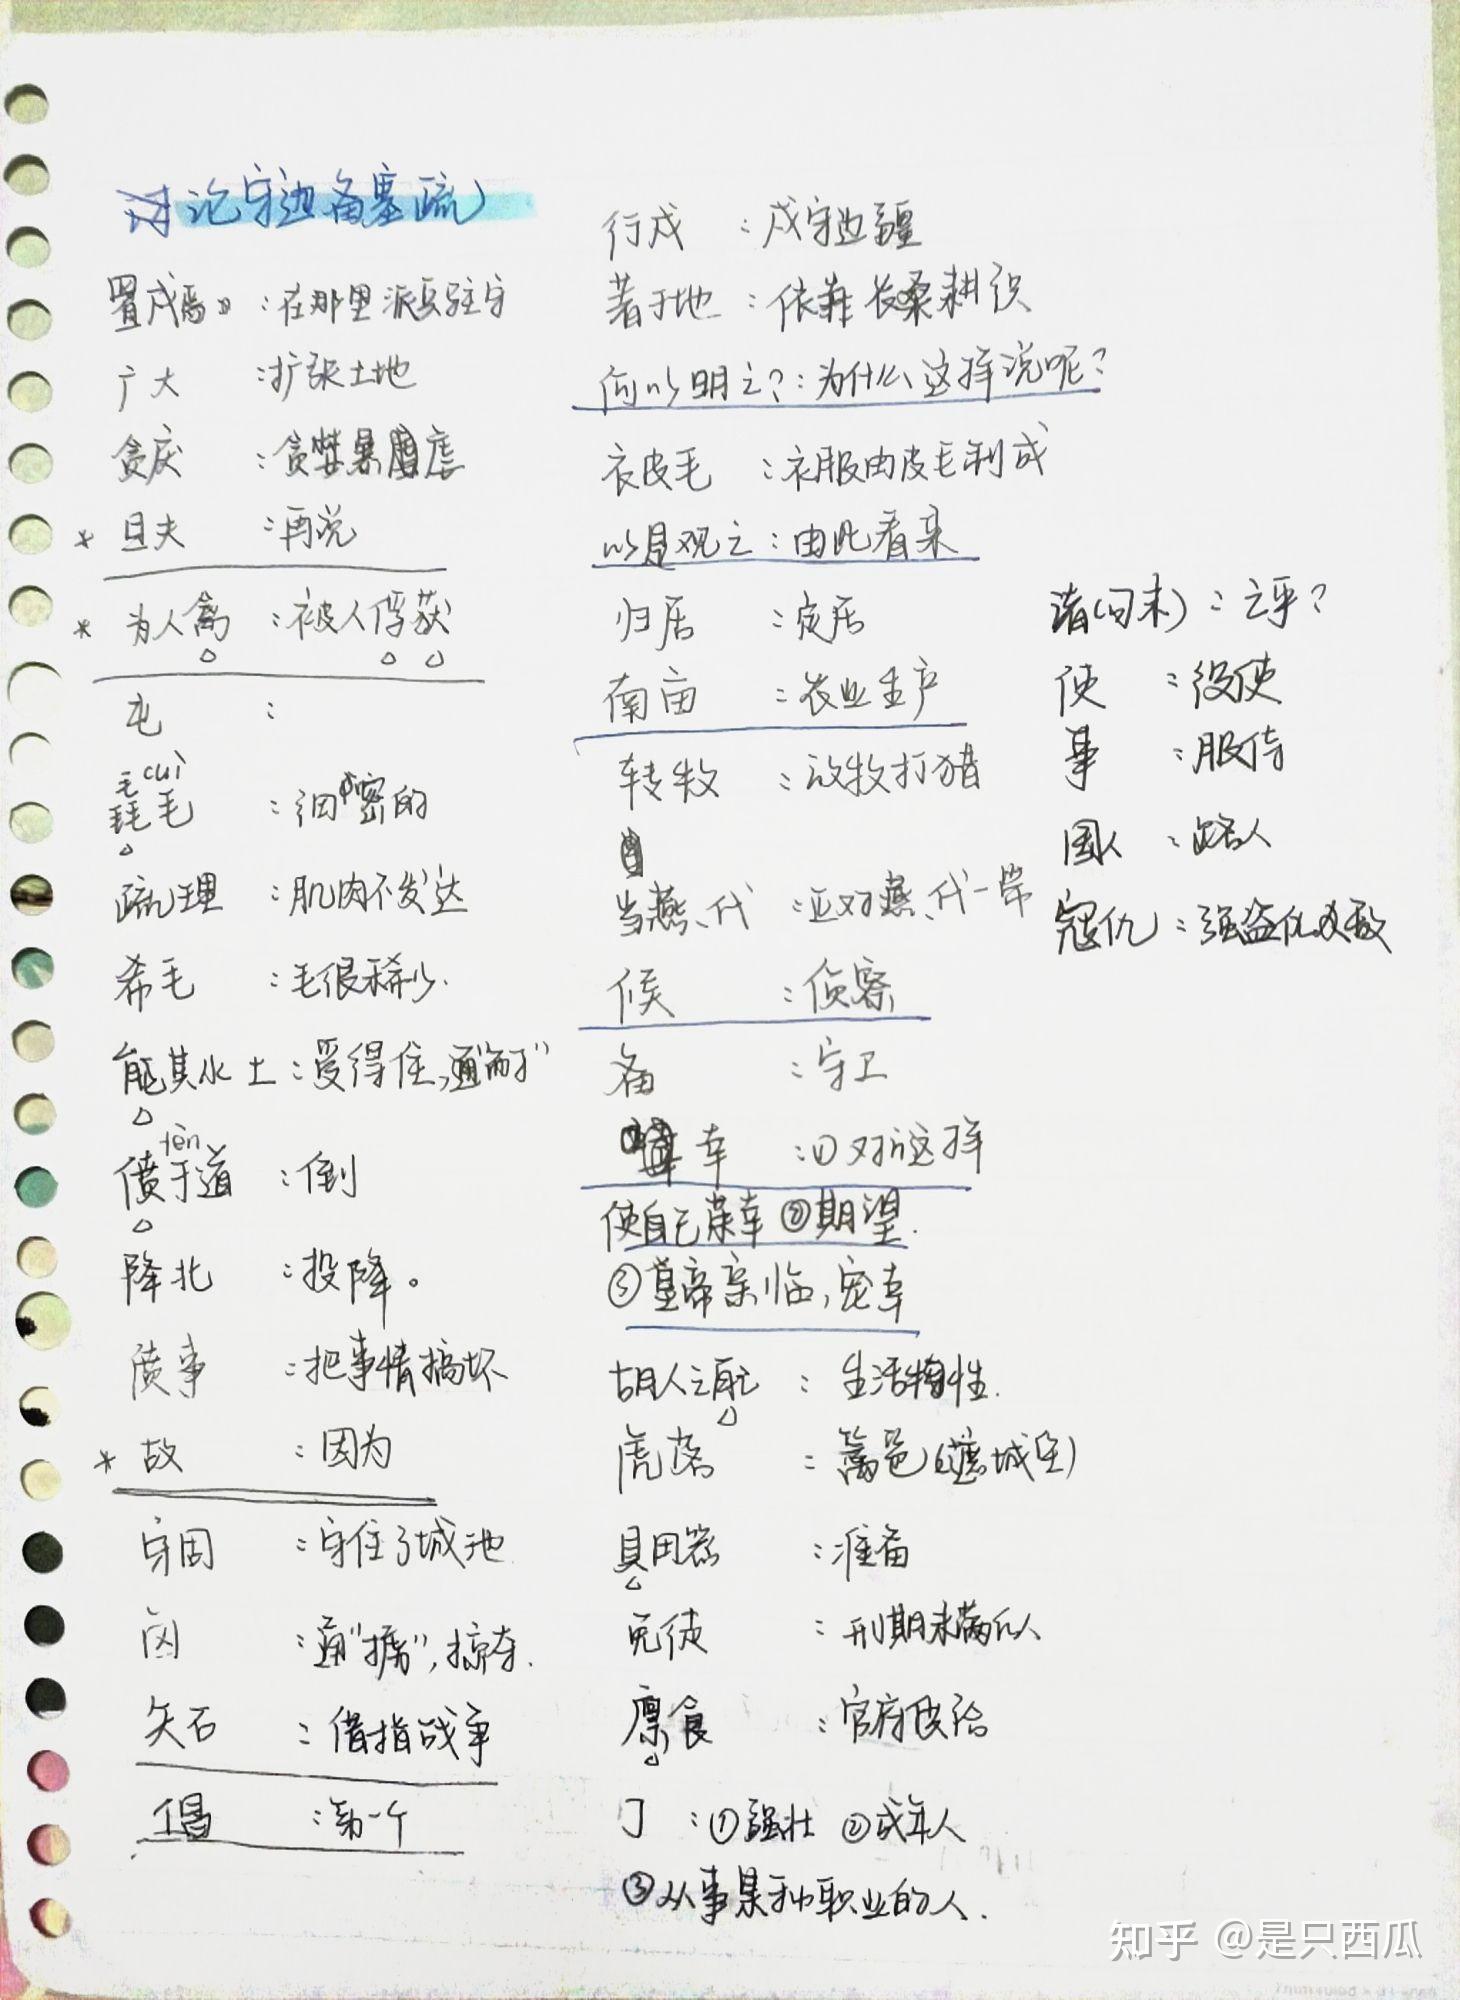 论守边备塞疏
置戍焉：在那里派兵驻守
广大：扩张土地
贪戾：贪婪暴虐
* 且夫：再说
* 为人禽：被人俘获
屯：
毳毛 cuì：细密的
疏理：肌肉不发达
希毛：毛很稀少.
能其水土：受得住，通“耐”
偾于道 fèn：倒
降北：投降。
偾事：把事情搞坏
* 故：因为
守固：守住了城池
卤：通“掳”，掠夺.
矢石：借指战争
倡：第一个
行戍：戍守边疆
著于地：依靠农桑耕织
何以明之？：为什么这样说呢？
衣皮毛：衣服由皮毛制成
以是观之：由此看来
归居：定居
南亩：农业生产
转牧：放牧打猎
当燕、代：正对燕、代一带
候：侦察
备：守卫
幸：①对这样
使自己荣幸 ②期望.
③皇帝亲临，宠幸
胡人之：生活特性.
虎落：篱邑（城堡）
具田器：准备
免徒：刑期未满的人
廪食：官府供给
丁：①强壮 ②成年人
③从事某种职业的人.
诸（句末）：之乎？
使：役使
事：服侍
国人：路人
寇仇：强盗仇敌
知乎 @是只西瓜